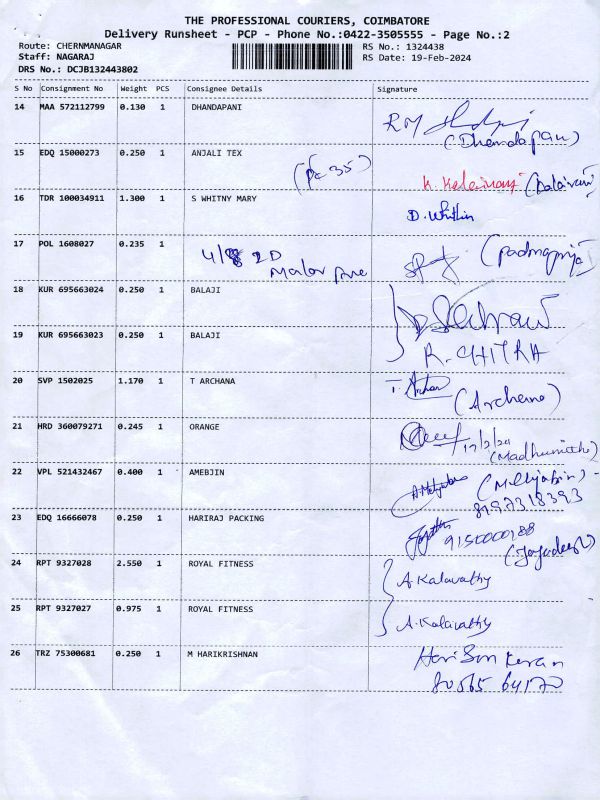 THE PROFESSIONAL COURIERS, COIMBATORE
Delivery Runsheet - PCP - Phone No.:0422-3505555 - Page No.:2
Route: CHERNMANAGAR
RS No.: 1324438
Staff: NAGARAJ
RS Date: 19-Feb-2024
DRS No.: DCJB132443802
S No Consignment No Weight PCS Consignee Details Signature
14 MAA 572112799 0.130 1 DHANDAPANI
RM
(Dhandapani)
15 EDQ 15000273 0.250 1 ANJALI TEX
(Pc 35)
16 TDR 100034911 1.300 1 S WHITNY MARY
D. Whitlin
17 POL 1608027 0.235 1
4/8 2D (Padmapriya)
Malar Ave
18 KUR 695663024 0.250 1 BALAJI
19 KUR 695663023 0.250 1 BALAJI
R. CHITRA
20 SVP 1502025 1.170 1 T ARCHANA
T. Archan
(Archana)
21 HRD 360079271 0.245 1 ORANGE
(Madhumitha)
22 VPL 521432467 0.400 1 AMEBJIN
8197318393
23 EDQ 16666078 0.250 1 HARIRAJ PACKING
9150000188
(Jayadeep)
24 RPT 9327028 2.550 1 ROYAL FITNESS
A. Kalavathy
25 RPT 9327027 0.975 1 ROYAL FITNESS
A. Kalavathy
26 TRZ 75300681 0.250 1 M HARIKRISHNAN
80565 64170